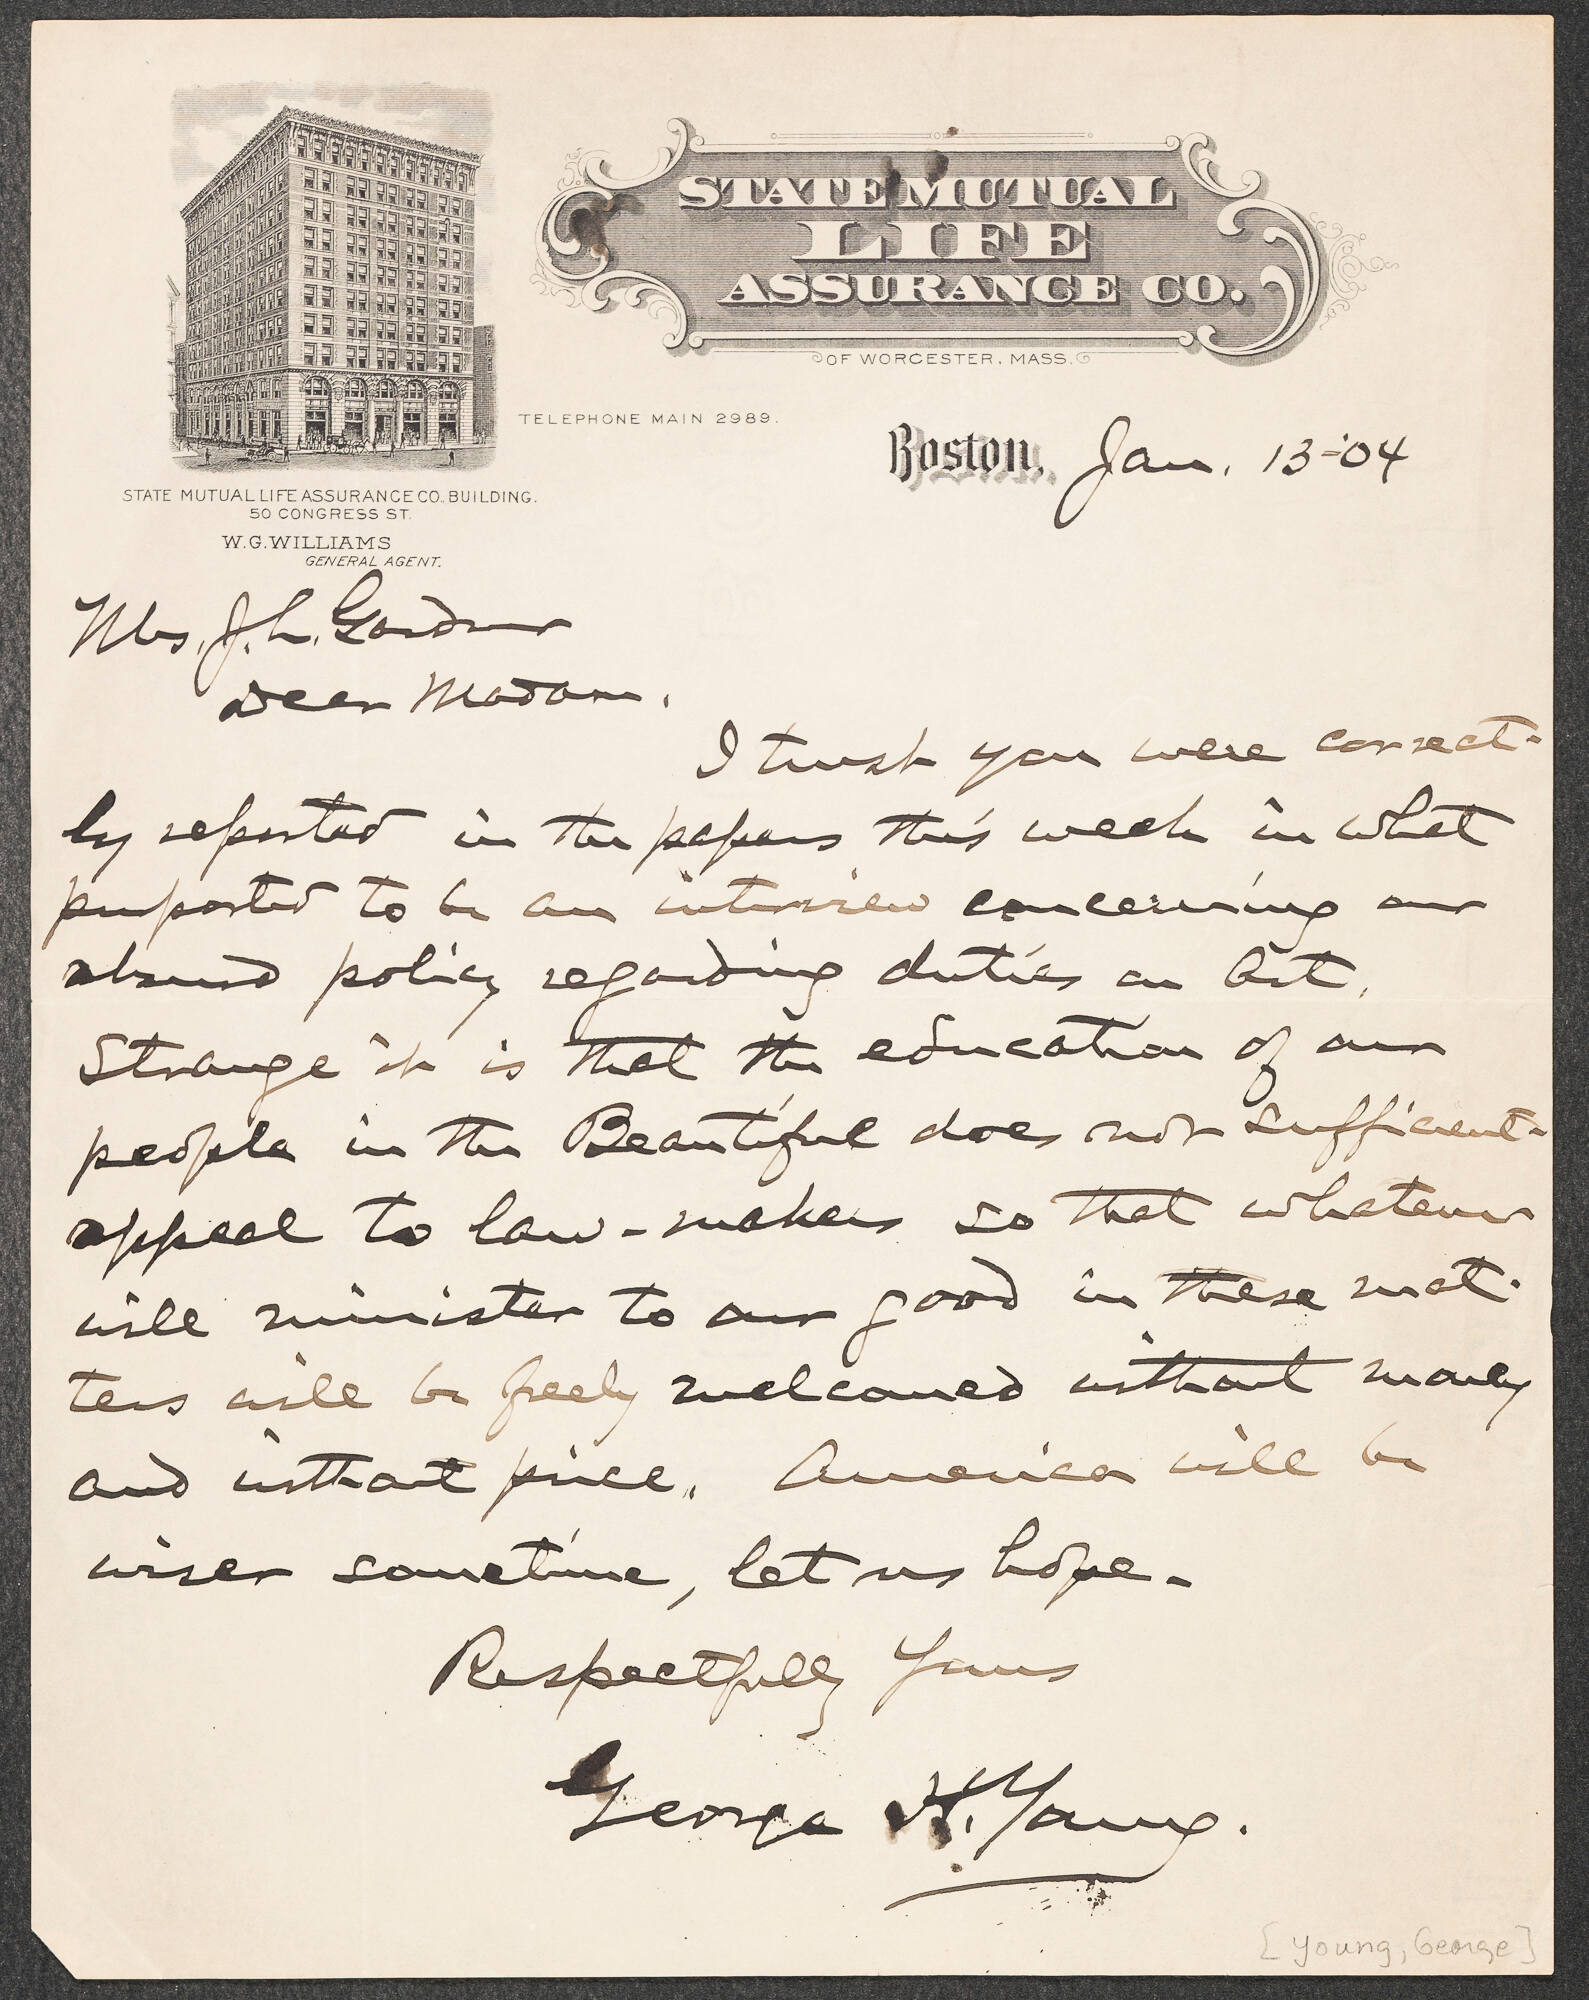 STATE MUTUAL
LIFE
ASSURANCE CO.
OF WORCESTER, MASS.
TELEPHONE MAIN 2989.
Boston, Jan. 13-'04
STATE MUTUAL LIFE ASSURANCE CO. BUILDING.
50 CONGRESS ST.
W. G. WILLIAMS
GENERAL AGENT.
Mrs. J. L. Gardner
Dear Madam,
I trust you were correct-
ly reported in the papers this week in what
purported to be an interview concerning our
absurd policy regarding duties on Art.
Strange it is that the education of our
people in the Beautiful does not sufficient-
appeal to law-makers so that whatever
will minister to our good in these mat-
ters will be freely welcomed without money
and without price. America will be
wiser sometime, let us hope.
Respectfully Yours
George H. Young.
[Young, George]